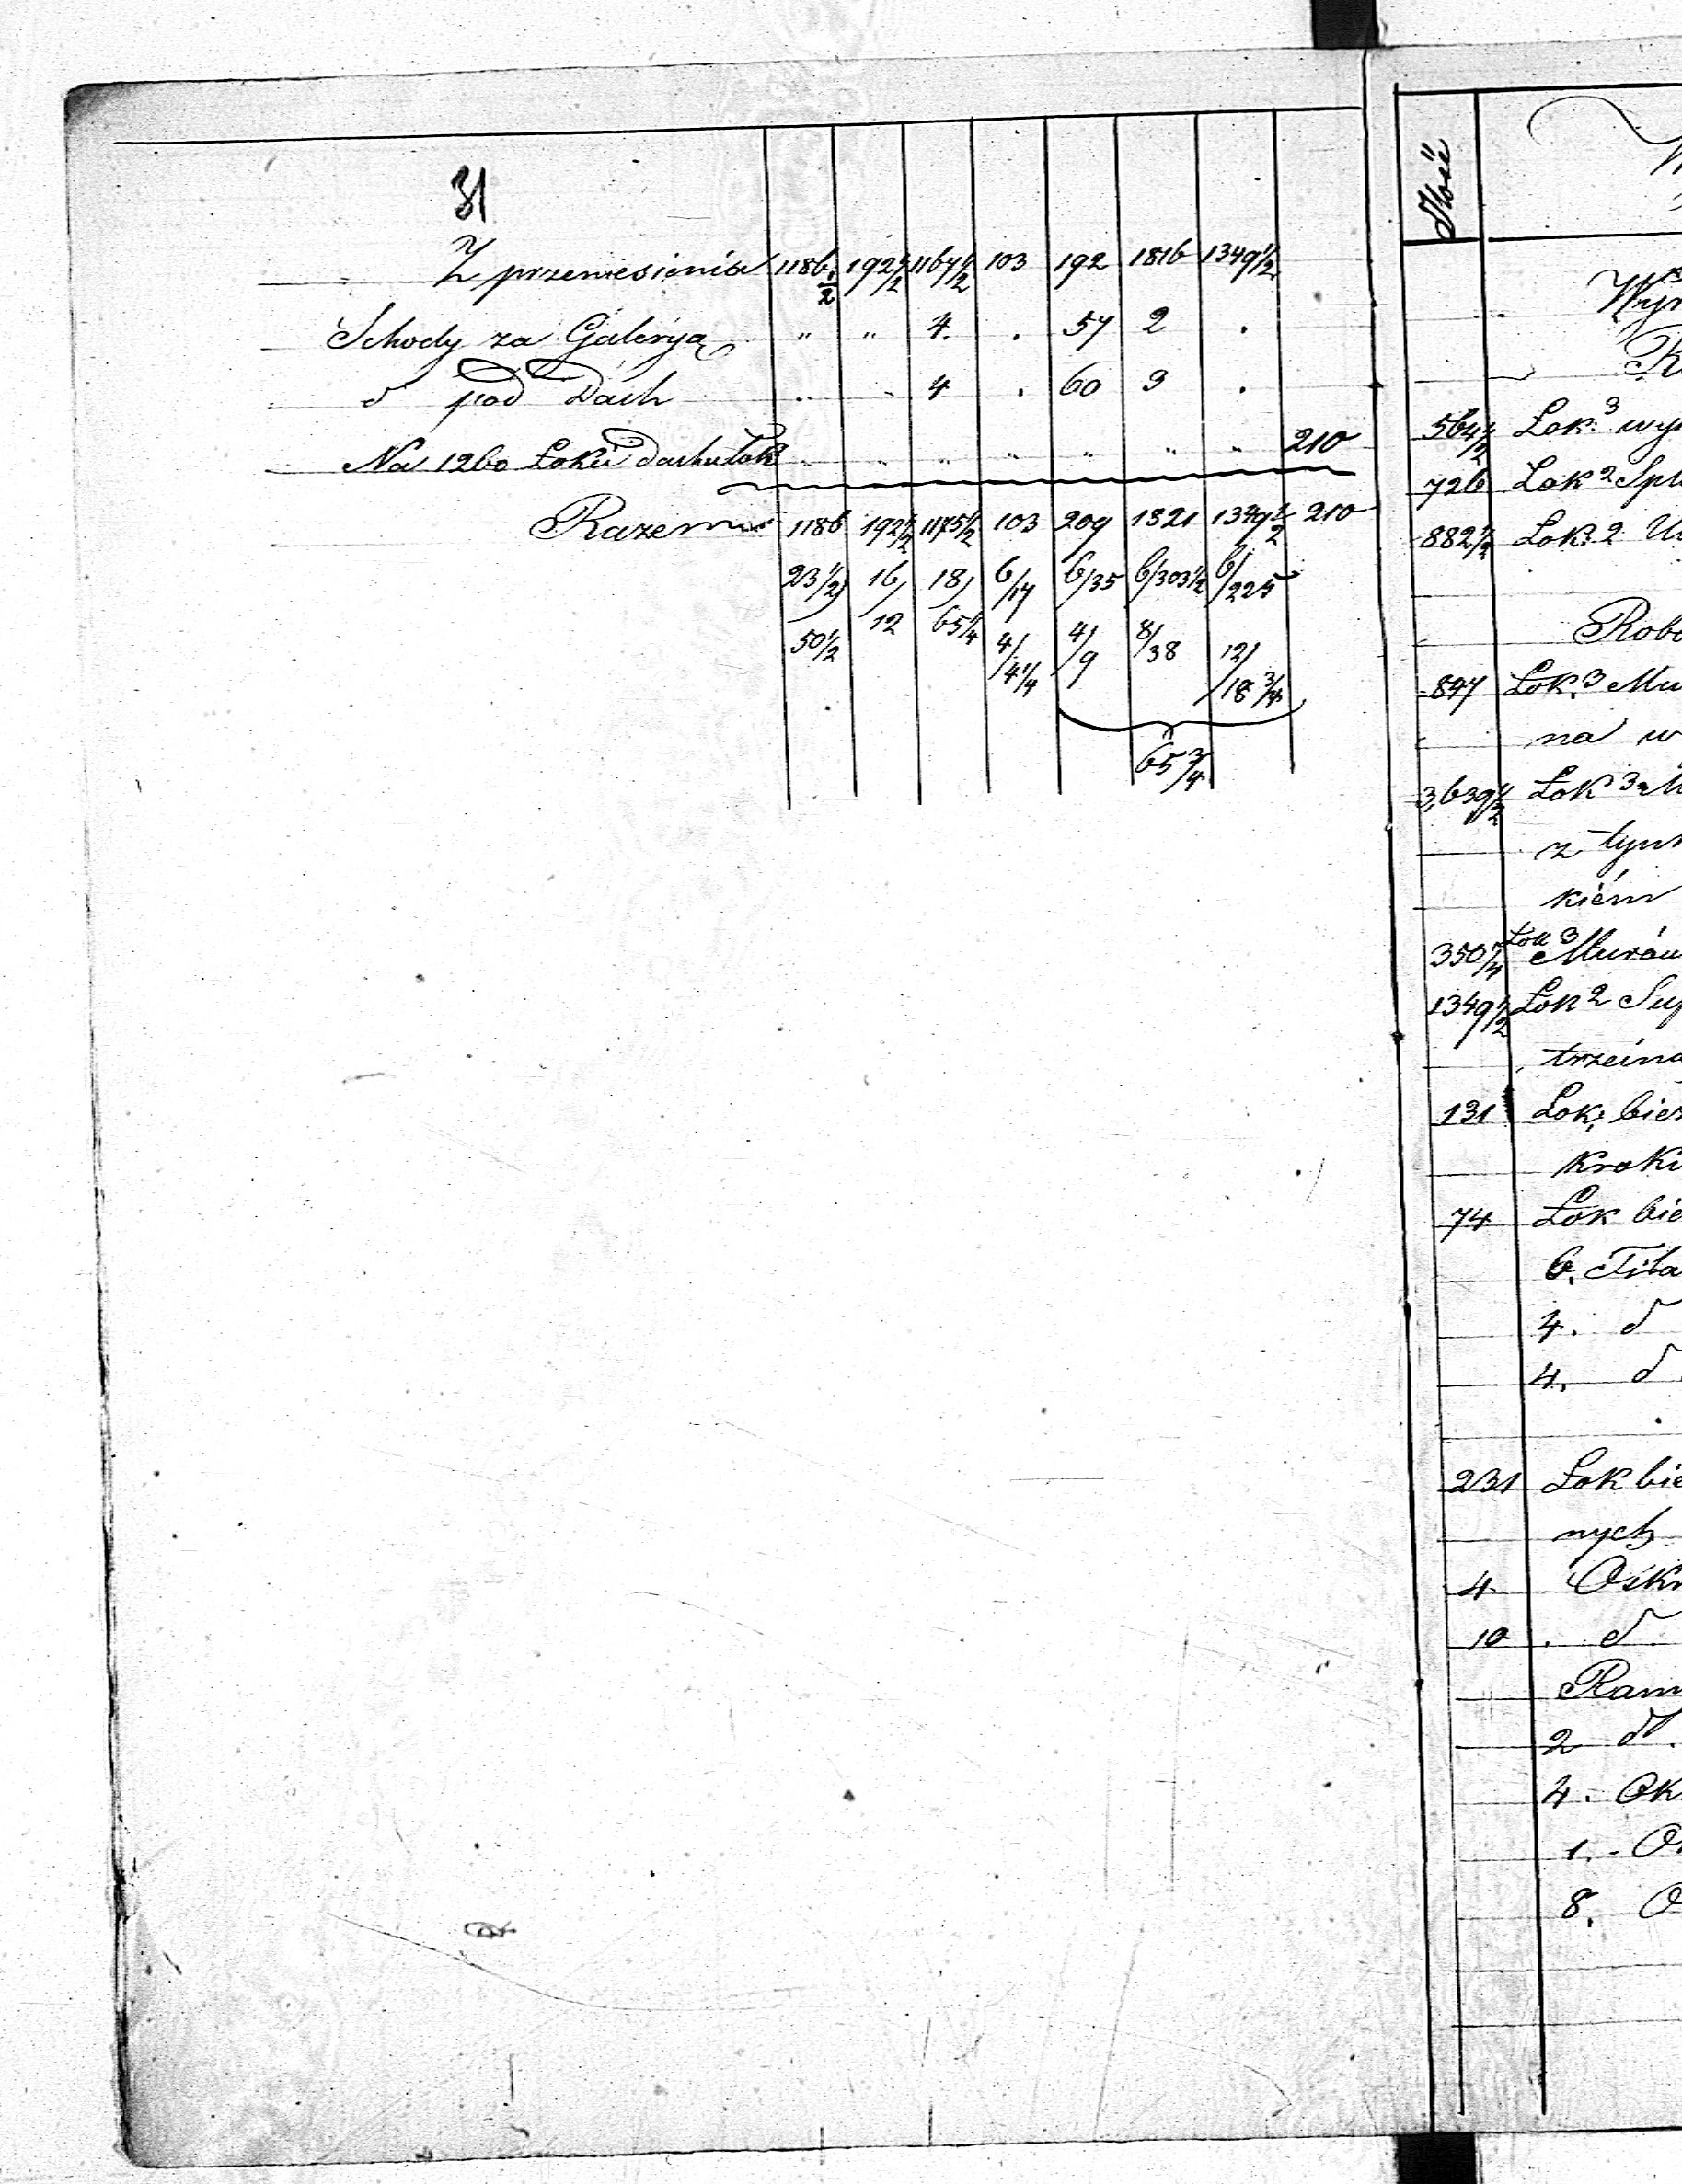 31
Z przeniesienia 1186 1/2 192 1/2 1167 1/2 103 192 1816 1349 1/2
Schody za Galeryą " " 4. . 57 2 .
d pod Dach .. .. 4 . 60 3 .
Na 1260 Łokci " " " " " " " 210
Razem 1186 192 1/2 1175 1/2 103 209 1821 1349 1/2 210
23 1/2/ 16/ 18/ 6/17 6/35 6/303 1/2 6/225
50 1/2 12 65 1/4 4/4 1/4 4/9 8/38 12/18 3/4
65 3/4
Ilość
Wyr
R
564 1/2 Łok: 3 wy
726 Łok 2 Spl
882 1/2 Łok: 2 U
Robo
847 Łok. 3 Mu
na w
3,639 1/2 Łok 3 M
z tyn
kiém
350 1/4 Łok 3 Murów
1349 1/2 Łok 2 Suf
trzciną
131 Łok; bież
kroki
74 Łok bie
6. Fila
4. d
4. d
231 Łok bie
nych
4 Ośkr
10 . d
Ram
2 d.
4. Ok
1. O
8. O